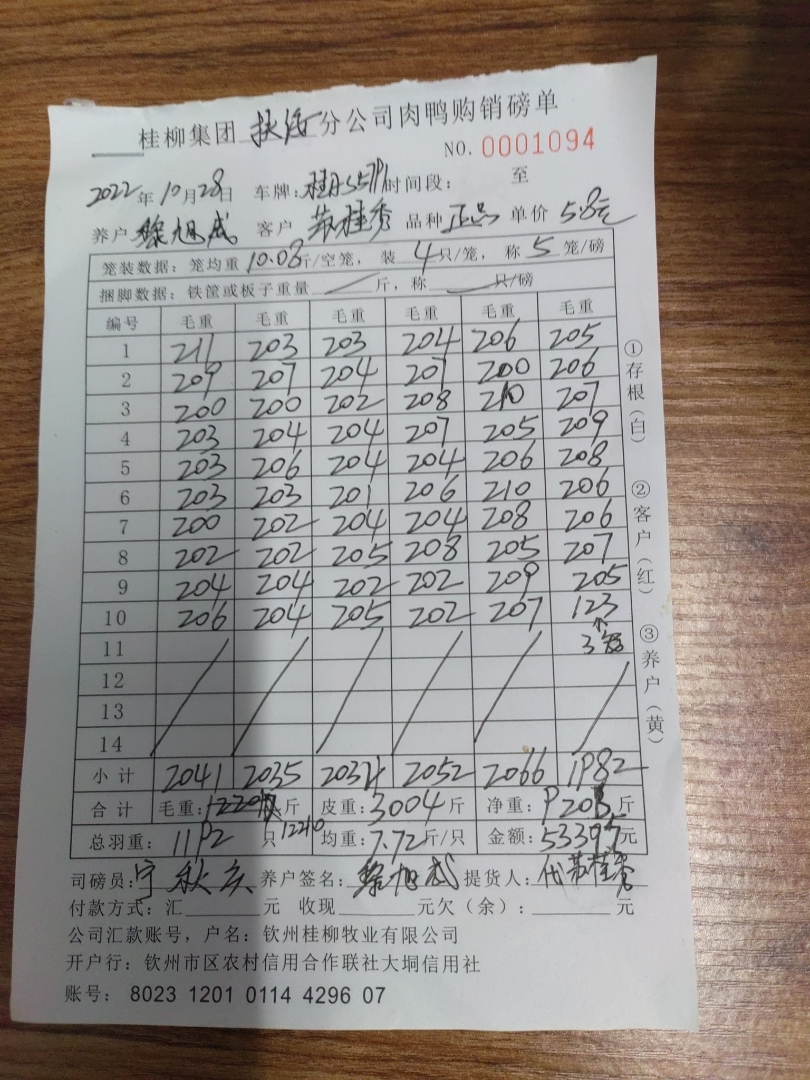 桂柳集团 扶绥 分公司肉鸭购销磅单
NO. 0001094
2022年10月28日 车牌: 时间段: 至
养户 黎旭威 客户 苏桂秀 品种 正品 单价 5.8元
笼装数据: 笼均重 10.08 斤/空笼, 装 4 只/笼, 称 5 笼/磅
捆脚数据: 铁筐或板子重量 / 斤, 称 只/磅
编号 毛重 毛重 毛重 毛重 毛重 毛重
1 211 203 203 204 206 205
2 209 207 204 207 200 206
3 200 200 202 208 210 207
4 203 204 204 207 205 209
5 203 206 204 204 206 208
6 203 203 201 206 210 206
7 200 202 204 204 208 206
8 202 202 205 208 205 207
9 204 204 202 202 209 205
10 206 204 205 202 207 123
11 3笼
12
13
14
小计 2041 2035 2034 2052 2066 1982
合计 毛重: 斤 皮重: 3004 斤 净重: 斤
12210
总羽重: 1192 只 均重: 7.72 斤/只 金额: 53395 元
司磅员: 宁秋庆 养户签名: 黎旭威 提货人: 代苏桂秀
付款方式: 汇 元 收现 元欠(余): 元
公司汇款账号, 户名: 钦州桂柳牧业有限公司
开户行: 钦州市区农村信用合作联社大垌信用社
账号: 8023 1201 0114 4296 07
①存根(白)
②客户(红)
③养户(黄)